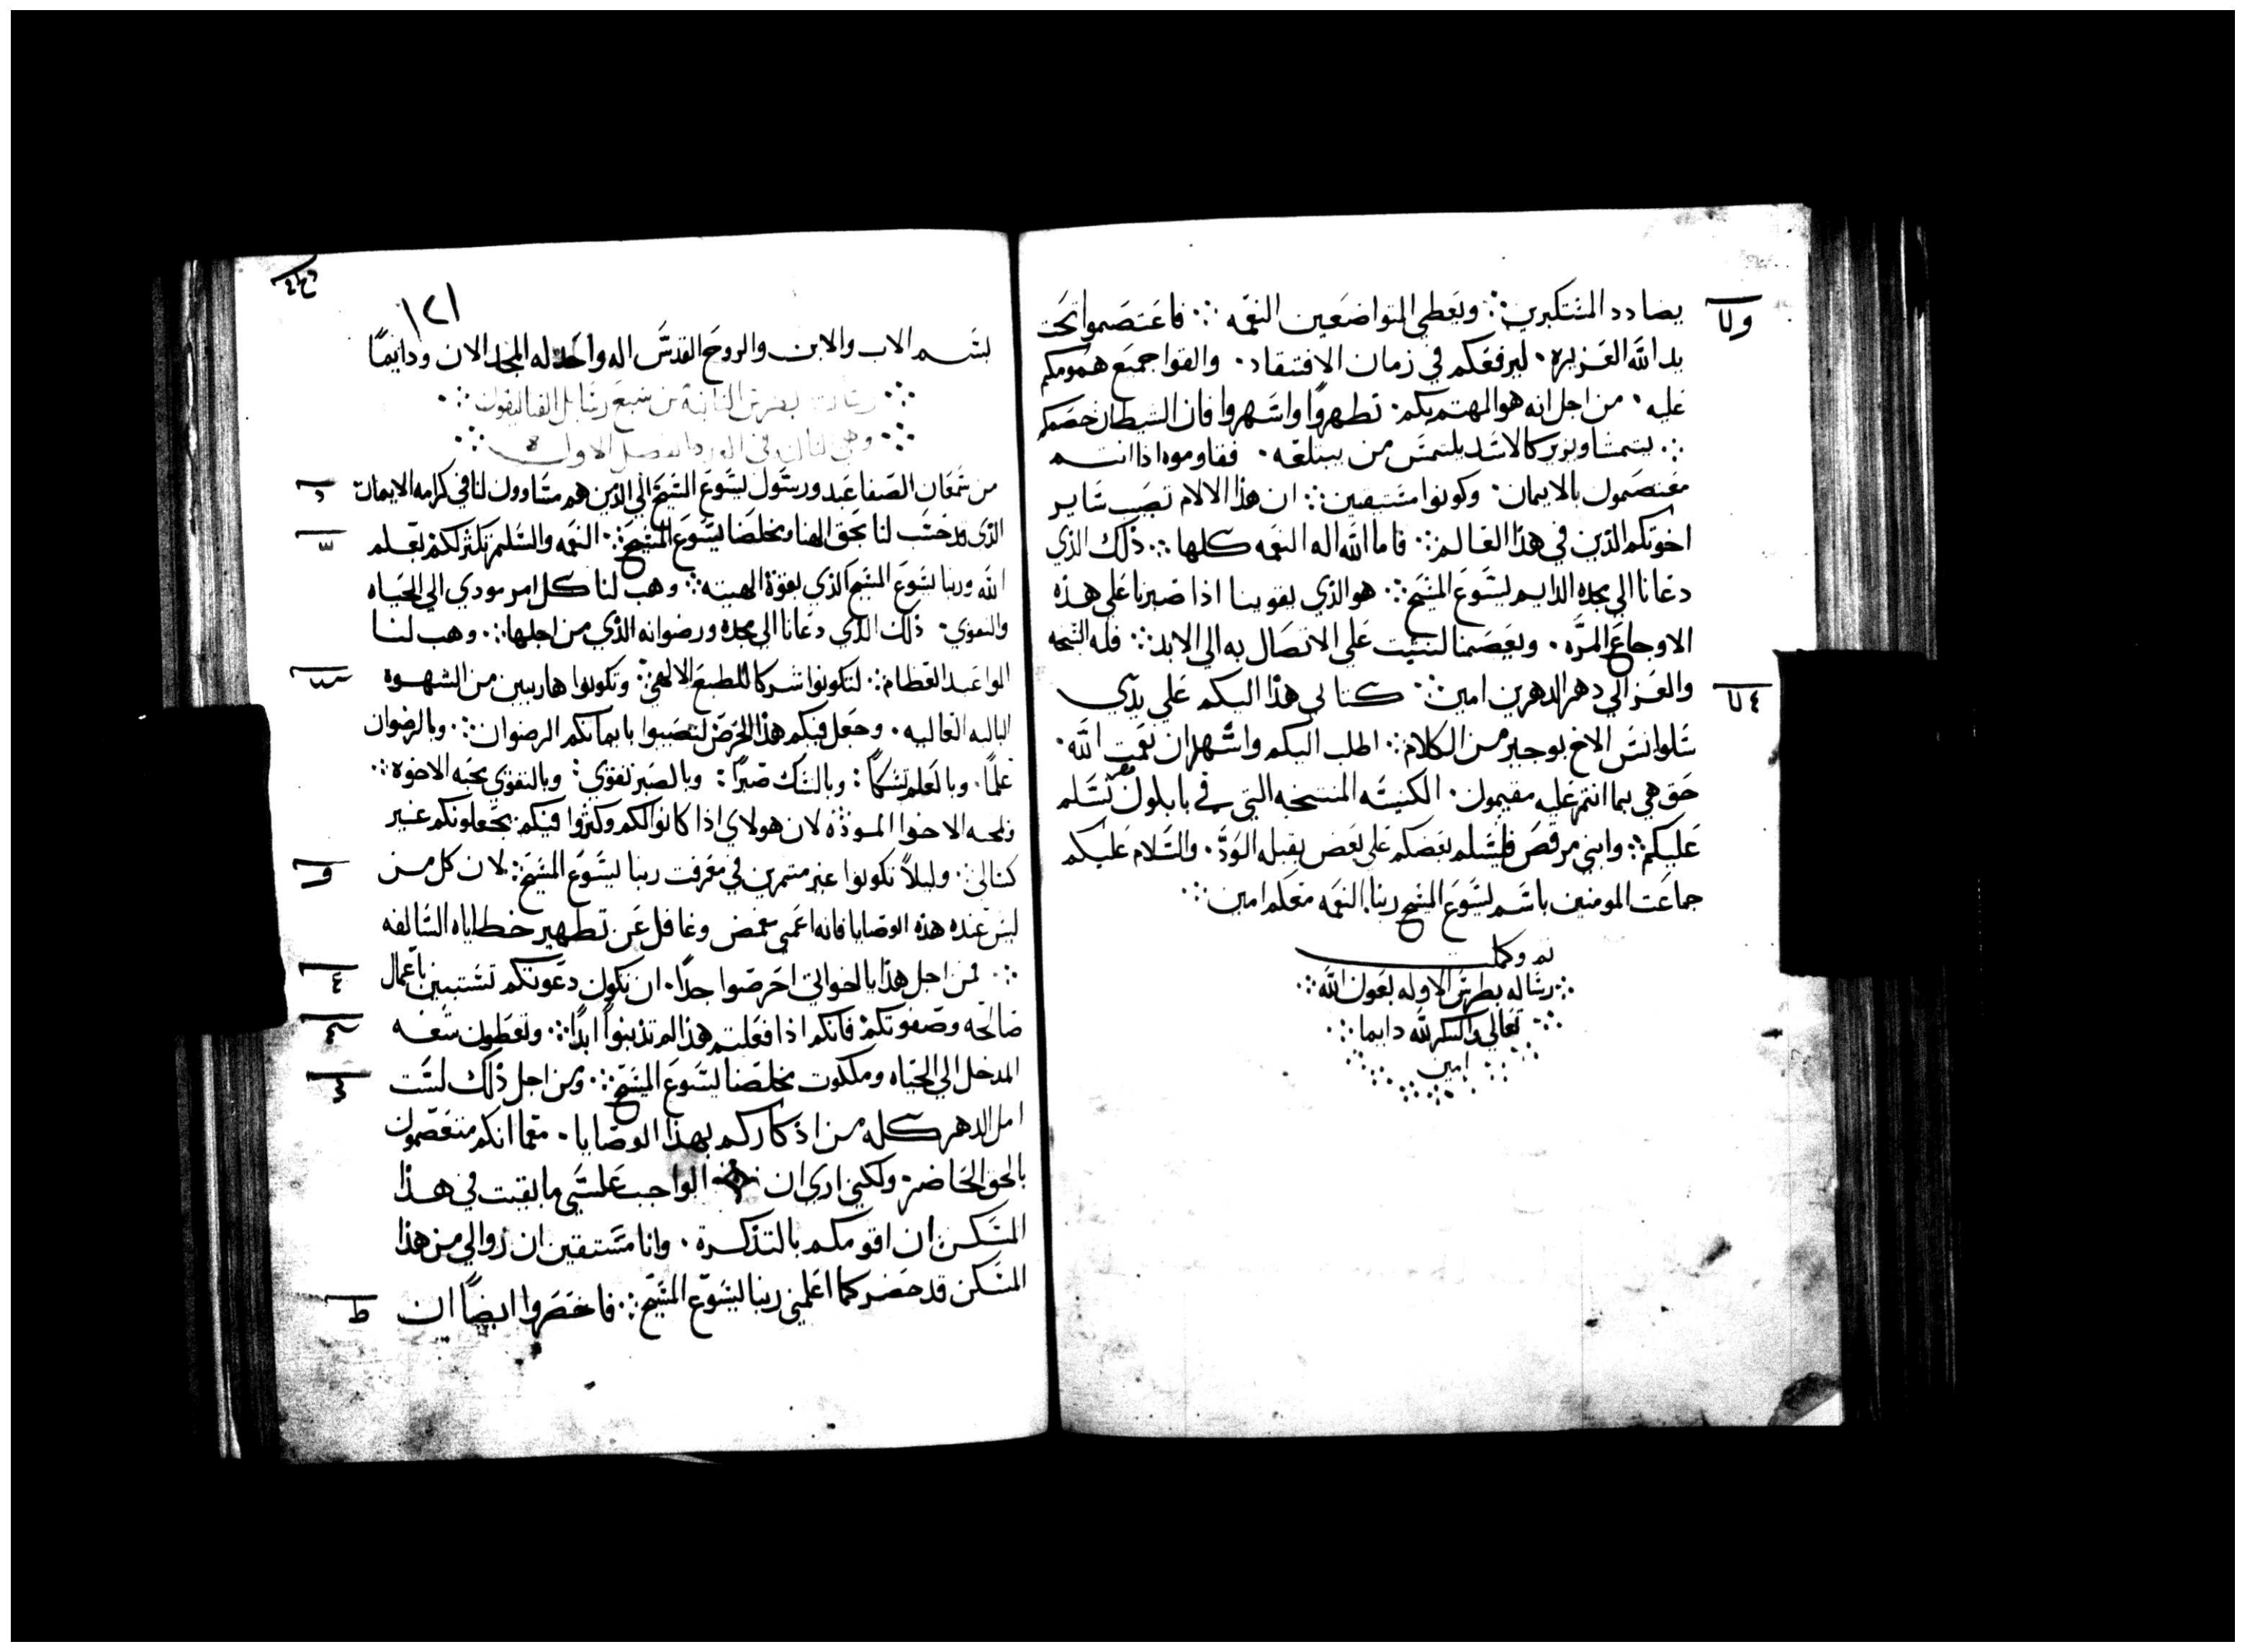 يضادد المتكبرين ؞ ويعطي المتواضعين النعمه ؞ فاعتصموا تحت
يد الله العزيزه . ليرفعكم في زمان الافتقاد . والقوا جميع همومكم
عليه . من اجل انه هو المهتم بكم . تطهروا واسهروا فان الشيطان خصمكم
؞ يتمشا ويزير كالاسد يلتمس من يبتلعه . فقاوموه اذا انتم
معتصمون بالايمان . وكونوا متيقنين ؞ ان هذا الالام تصيب ساير
اخوتكم الذين في هذا العالم ؞ فاما الله اله النعمه كلها ؞ ذلك الذي
دعانا الي مجده الدايم ليسوع المسيح ؞ هو الذي يقوينا اذا صبرنا علي هذه
الاوجاع المره . ويعصمنا لنثبت علي الاتصال به الي الابد ؞ فله التسبحه
والعز الي دهر الدهرين امين ؞ كتابي هذا اليكم علي يدي
سلوانس الاخ بوجيز من الكلام ؞ اطلب اليكم واشهد ان نعمت الله .
حق هي بما انتم عليه مقيمون . الكنيسه المنتخبه التي في بابلون تسلم
عليكم ؞ وابني مرقص فليسلم بعضكم علي بعض بقبله الود . والسلام عليكم
جماعت المومنين باسم يسوع المسيح ربنا النعمه معكم امين ؞
تم وكملت
؞ رساله بطرس الاوله بعون الله ؞
؞ تعالي والشكر لله دايما ؞
امين
١٢١
بسم الاب والابن والروح القدس اله واحد له المجد الان ودايمًا
بطرس الثانيه من سبع رسايل القتاليقون ؞
الفصل الاول
من شمعان الصفا عبد ورسول يسوع المسيح الي الذين هم متساوون لنا في كرامه الايمان
الذي قد حسب لنا بحق الهنا ومخلصنا يسوع المسيح ؞ النعمه والسلم تكثر لكم بعلم
الله وربنا يسوع المسيح الذي بقوة الهيته ؞ وهب لنا كل امر مودي الي الحياه
والتقوي . ذلك الذي دعانا الي مجده ورضوانه الذي من اجلها ؞ وهب لنا
المواعيد العظام ؞ لتكونوا شركا للطبع الالهي ؞ وتكونوا هاربين من الشهوة
الباليه العالميه . وجعل فيكم هذا الحرص لتصيبوا بايمانكم الرضوان ؞ وبالرضوان
علمًا . وبالعلم تنسكًا : وبالنسك صبرًا : وبالصبر تقوي : وبالتقوي محبه الاخوه ؞
وبمحبه الاخوا الموده لان هولاي اذا كانوا لكم وكثروا فيكم يجعلونكم غير
كسالي . وليلاً تكونوا غير مثمرين في معرفت ربنا يسوع المسيح ؞ لان كل من
ليس عنده هذه الوصايا فانه اعمي مغمض وغافل عن تطهير خطاياه السالفه
؞ فمن اجل هذا يا اخواتي احرصوا جدًا . ان تكون دعوتكم تستبين باعمال
صالحه وصفوتكم فانكم اذا فعلتم هذا لم تذنبوا ابدًا ؞ وتعطون سعه
المدخل الي الحياه وملكوت مخلصنا يسوع المسيح ؞ ومن اجل ذلك لست
امل الدهر كله من اذكاركم بهذا الوصايا . معما انكم معتصمون
بالحق الحاضر . ولكني اري ان الواجب علي ما بقيت في هذا
المسكن ان اقومكم بالتذكرة . وانا مستيقن ان زوالي من هذا
المسكن قد حضر كما اعلمني ربنا يسوع المسيح ؞ فاحضروا ايضًا ان